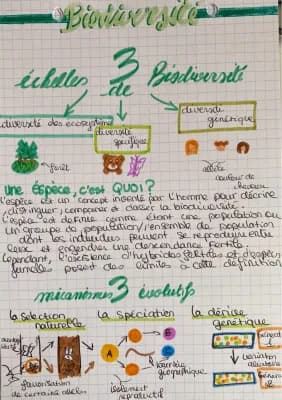 Biodiversité
3 échelles de Biodiversité
diversité des ecosystèmes
diversité spécifique
diversité génétique
forêt
couleur de cheveux
Une Espèce, c'est QUOI?
l'espèce est un concept inventé par l'homme pour décrire
, distinguer, comparer et classer la biodiversité.
L'espèce est définie comme étant une population ou
un groupe de population/ensemble de population
dont les individus peuvent se reproduire entre
eux et engendrer descendance fertile.
Cependant, l'existence d'hybrides fertiles et d'espèces
posent des limites à cette définition
3 mécanismes évolutifs
la sélection naturelle
la spéciation
la dérive génétique
A
B
barrière géographique
variation aléatoire
favorisation
de certains allèles
isolement
reproductif